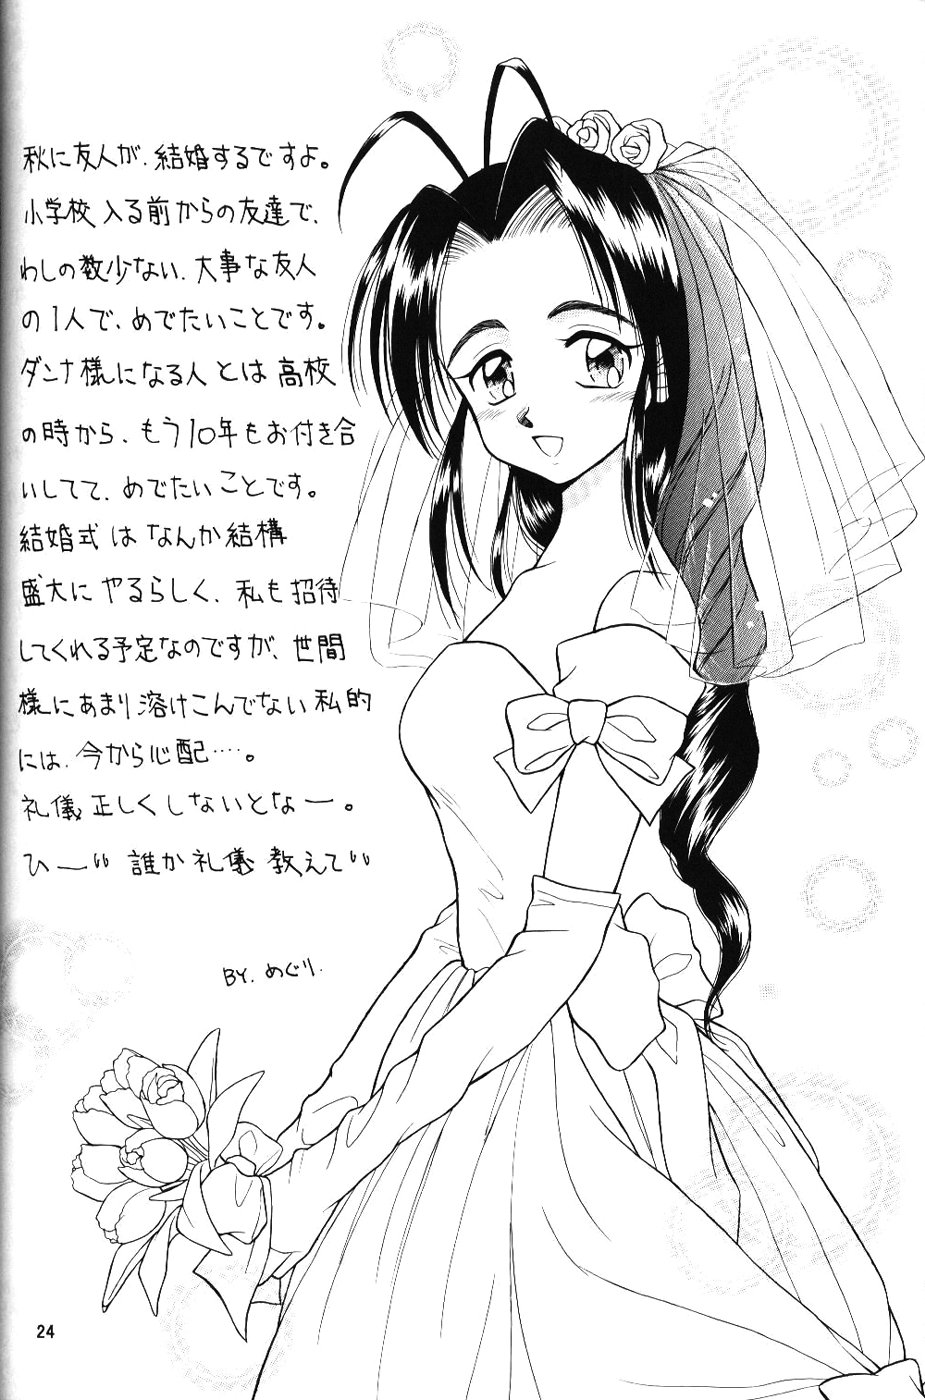 秋に友人が、結婚するですよ。
小学校入る前からの友達で、
わしの数少ない、大事な友人
の1人で、めでたいことです。
ダンナ様になる人とは高校
の時から、もう10年もお付き合
いしてて、めでたいことです。
結婚式はなんか結構
盛大にやるらしく、私も招待
してくれる予定なのですが、世間
様にあまり溶けこんでない私的
には、今から心配…。
礼儀正しくしないとなー。
ひー〃誰か礼儀教えて〃
BY.めぐり.
24